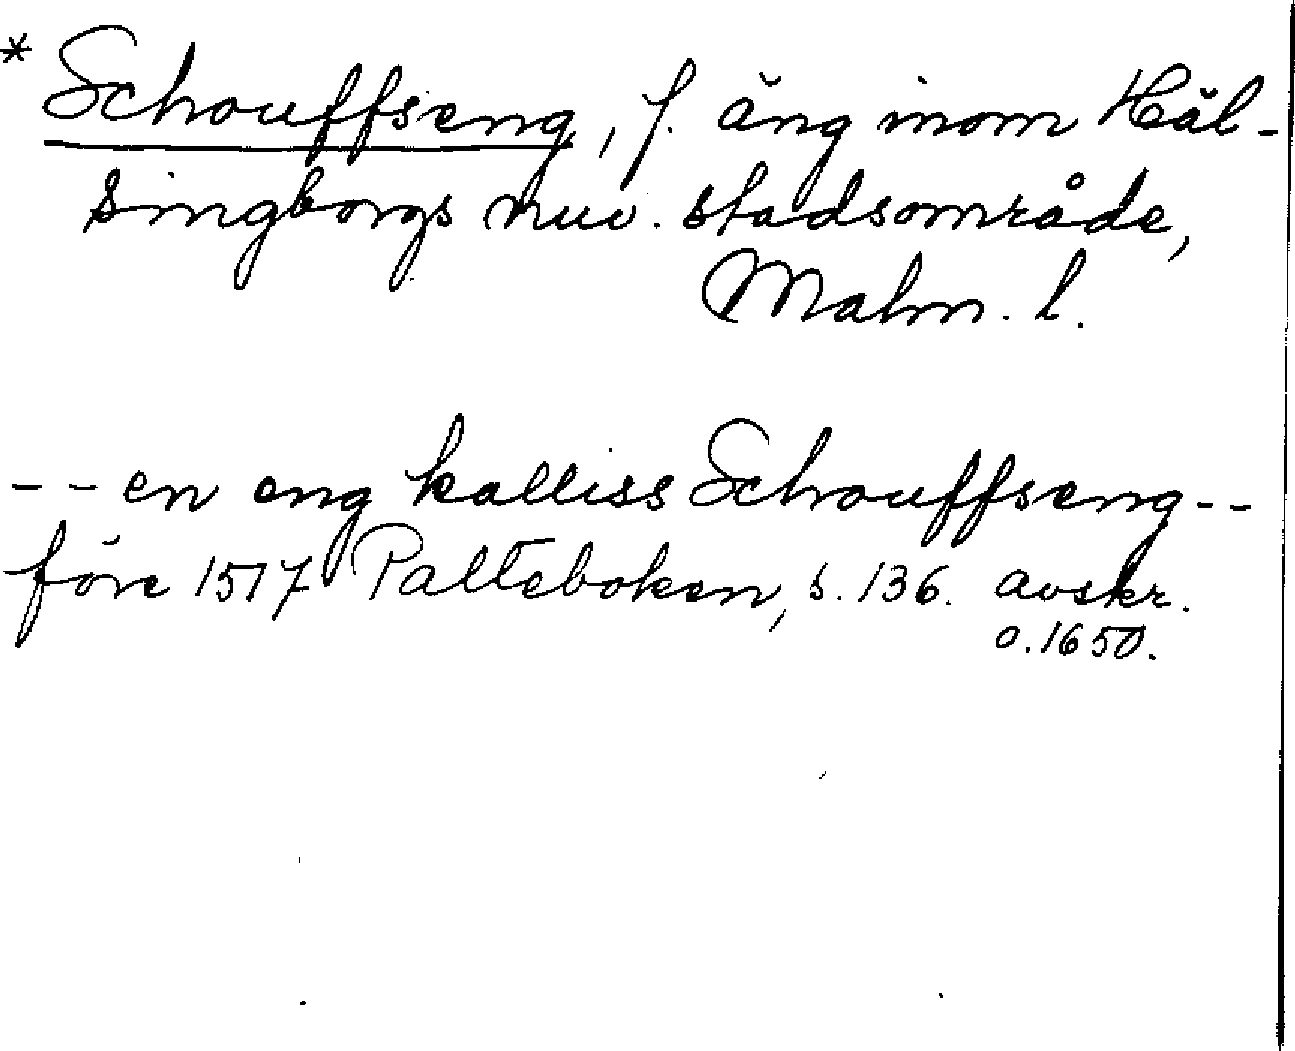 * Schouffseng, f. äng inom Häl-
singborgs nuv. stadsområde,
Malm. l.
-- en eng kalliss Schouffseng --
före 1517 Palteboken, s. 136. avskr.
o. 1650.